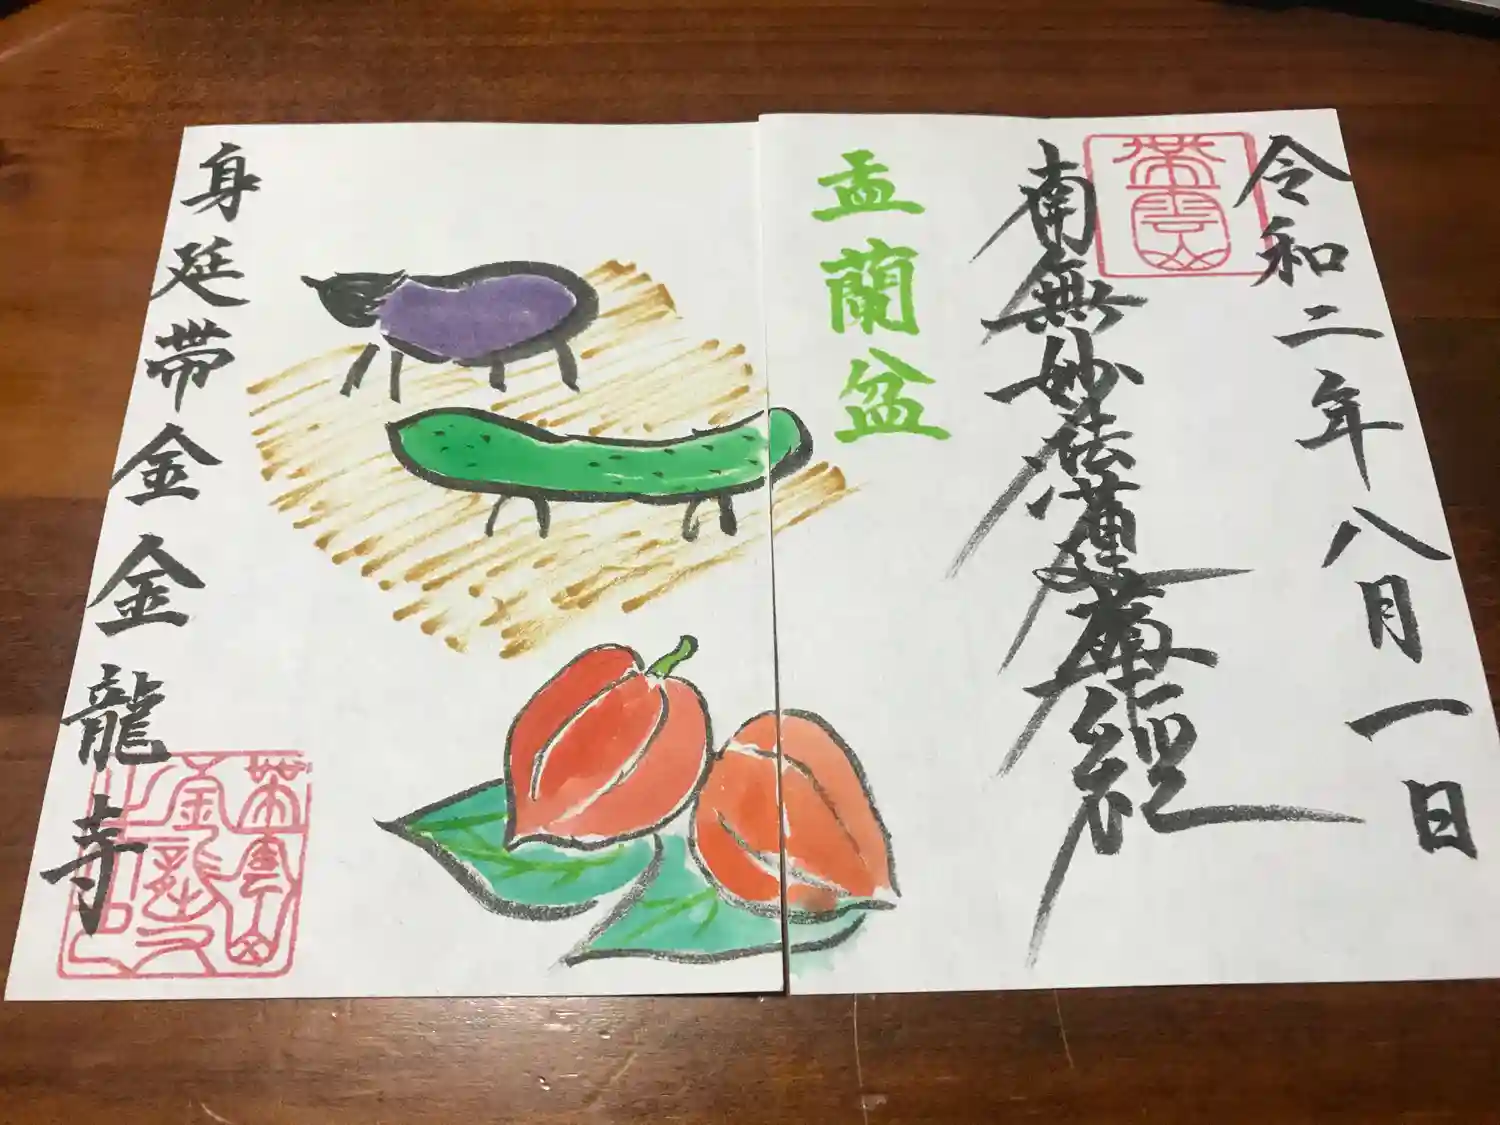 令和二年八月一日
帯雲山
南無妙法蓮華經
盂蘭盆
身延帯金金龍寺
帯雲山